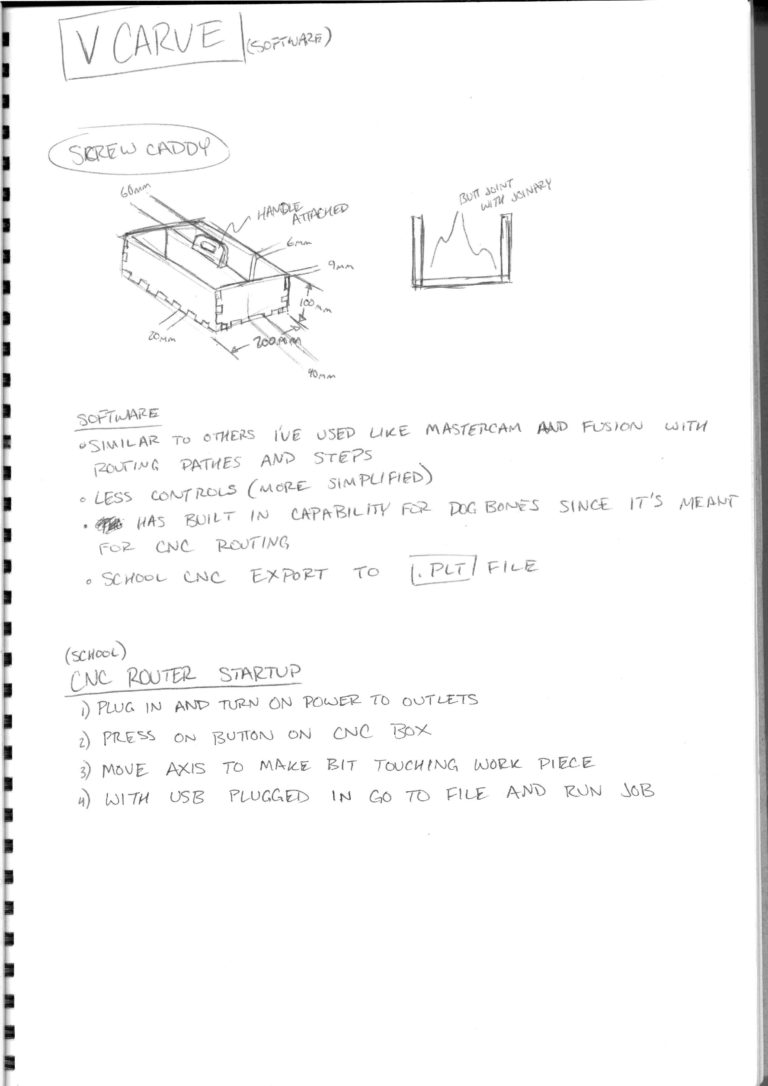 V CARVE (SOFTWARE)
SCREW CADDY
60mm
HANDLE
ATTACHED
6mm
9mm
100mm
20mm
200mm
40mm
BUTT JOINT
WITH JOINARY
SOFTWARE
• SIMILAR TO OTHERS I'VE USED LIKE MASTERCAM AND FUSION WITH
ROUTING PATHES AND STEPS
• LESS CONTROLS (MORE SIMPLIFIED)
• HAS BUILT IN CAPABILITY FOR DOG BONES SINCE IT'S MEANT
FOR CNC ROUTING
• SCHOOL CNC EXPORT TO .PLT FILE
(SCHOOL)
CNC ROUTER STARTUP
1) PLUG IN AND TURN ON POWER TO OUTLETS
2) PRESS ON BUTTON ON CNC BOX
3) MOVE AXIS TO MAKE BIT TOUCHING WORK PIECE
4) WITH USB PLUGGED IN GO TO FILE AND RUN JOB